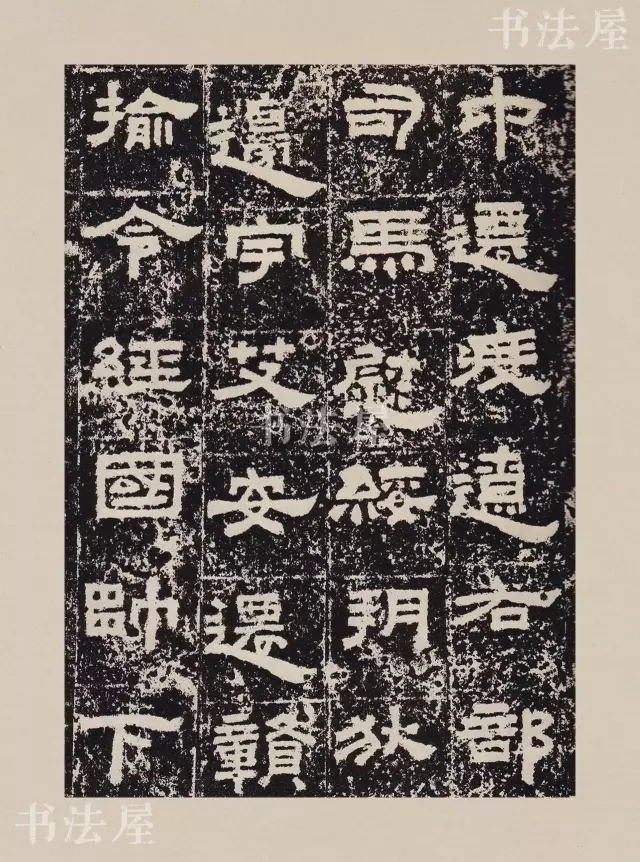 书法屋
中遷度遼右部
司馬慰綏朔狄
邊宇艾安遷贛
揄令經國帥下
书法屋
书法屋